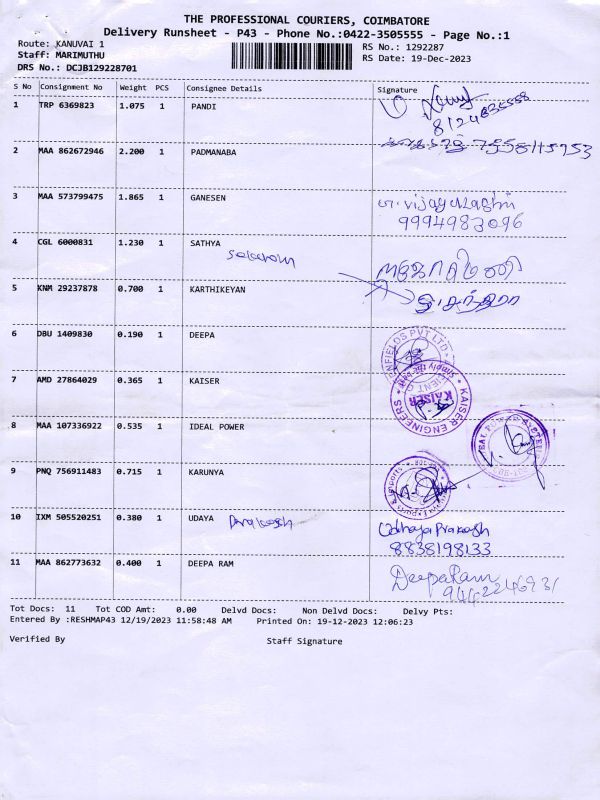 THE PROFESSIONAL COURIERS, COIMBATORE
Delivery Runsheet - P43 - Phone No.:0422-3505555 - Page No.:1
Route: KANUVAI 1
RS No.: 1292287
Staff: MARIMUTHU
RS Date: 19-Dec-2023
DRS No.: DCJB129228701
S No Consignment No Weight PCS Consignee Details Signature
1 TRP 6369823 1.075 1 PANDI
8124835558
2 MAA 862672946 2.200 1 PADMANABA
3 MAA 573799475 1.865 1 GANESEN
9994983096
4 CGL 6000831 1.230 1 SATHYA
5 KNM 29237878 0.700 1 KARTHIKEYAN
6 DBU 1409830 0.190 1 DEEPA
7 AMD 27864029 0.365 1 KAISER
KAISER ENGINEERS
KAISER
8 MAA 107336922 0.535 1 IDEAL POWER
9 PNQ 756911483 0.715 1 KARUNYA
10 IXM 505520251 0.380 1 UDAYA Prakash
Udhaya Prakash
8838198133
11 MAA 862773632 0.400 1 DEEPA RAM
DeepaRam
Tot Docs: 11 Tot COD Amt: 0.00 Delvd Docs: Non Delvd Docs: Delvy Pts:
Entered By :RESHMAP43 12/19/2023 11:58:48 AM Printed On: 19-12-2023 12:06:23
Verified By Staff Signature